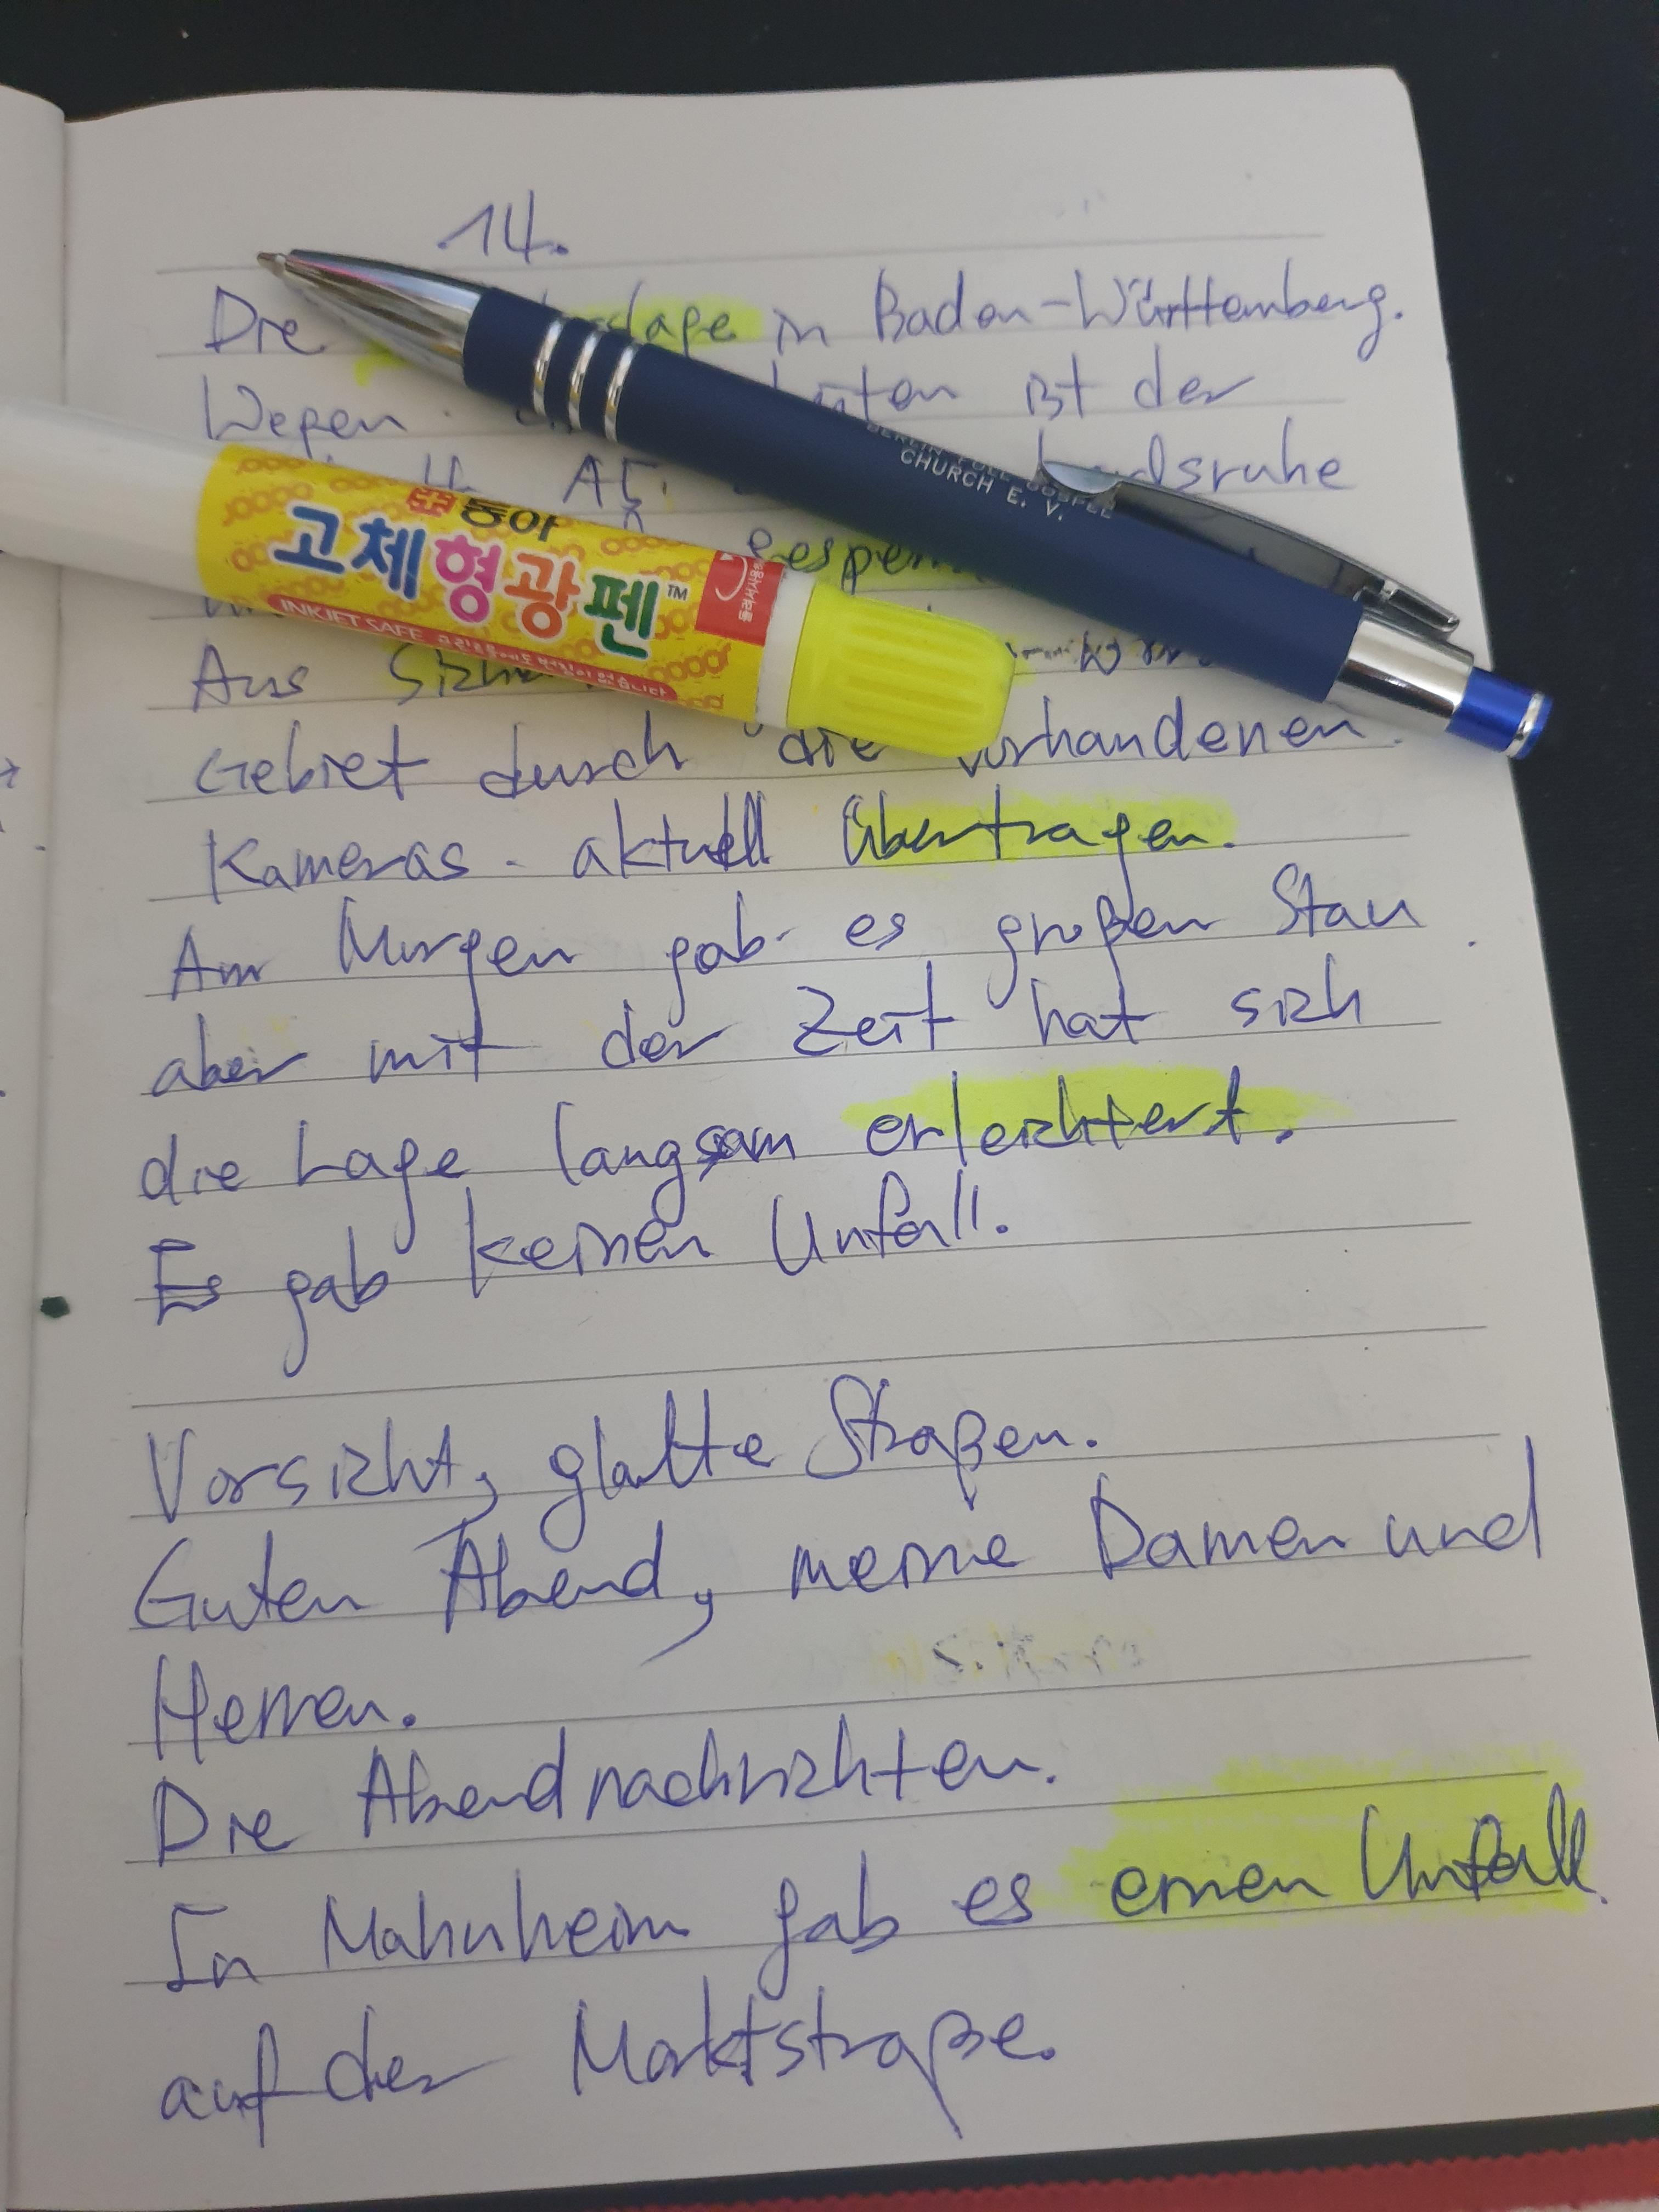 14.
Die in Baden-Württemberg.
Wegen ist der
A5
Aus
Gebiet durch die vorhandenen
Kameras aktuell übertragen.
Am Morgen gab es großen Stau
aber mit der Zeit hat sich
die Lage langsam erleichtert.
Es gab keinen Unfall.
Vorsicht, glatte Straßen.
Guten Abend, meine Damen und
Herren.
Die Abendnachrichten.
In Mahnheim gab es einen Unfall
auf der Marktstraße.
동아
고체형광펜™
INKJET SAFE
CHURCH E. V.